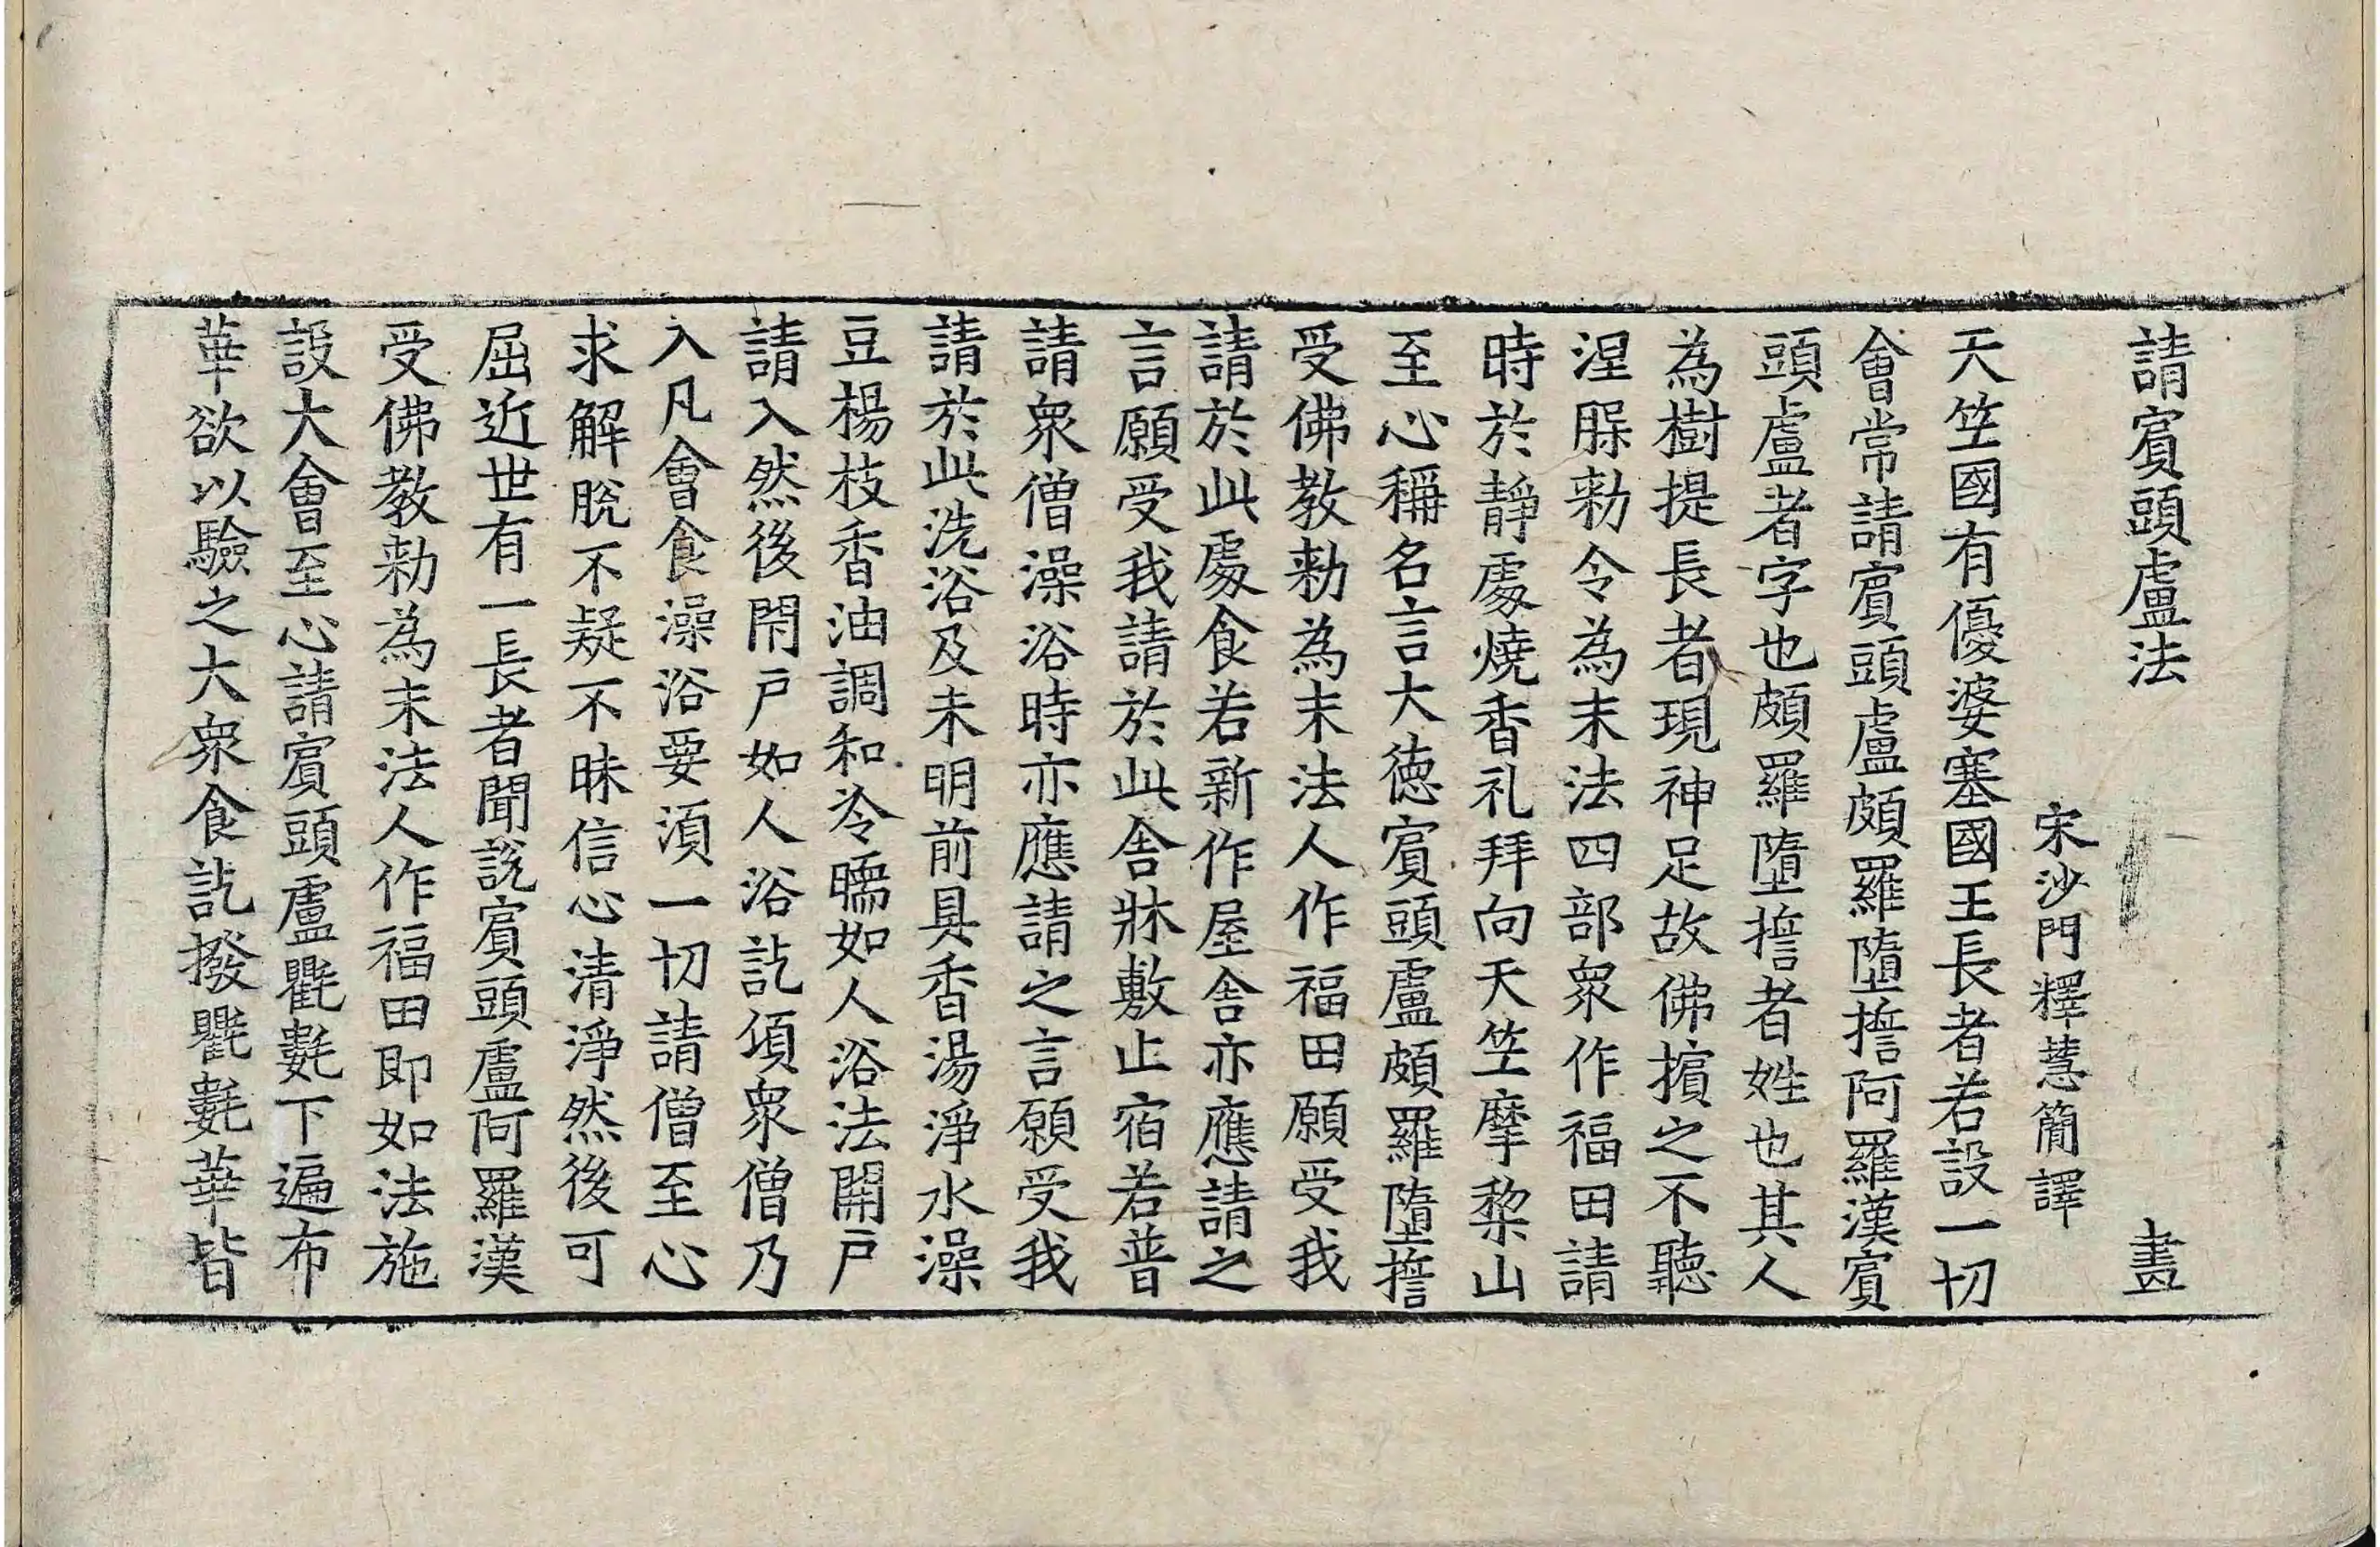 請賔頭盧法　畫
宋沙門釋慧簡譯
天竺國有優婆塞國王長者若設一切
會常請賔頭盧頗羅墮誓阿羅漢賔
頭盧者字也頗羅墮誓者姓也其人
為樹提長者現神足故佛擯之不聽
涅槃勑令為末法四部衆作福田請
時於靜處燒香礼拜向天竺摩梨山
至心稱名言大徳賔頭盧頗羅墮誓
受佛教勑為末法人作福田願受我
請於此處食若新作屋舍亦應請之
言願受我請於此舍牀敷止宿若普
請衆僧澡浴時亦應請之言願受我
請於此洗浴及未明前具香湯淨水澡
豆楊枝香油調和冷暖如人浴法開戸
請入然後閇戸如人浴訖頃衆僧乃
入凡會食澡浴要湏一切請僧至心
求解脫不疑不昧信心清淨然後可
屈近世有一長者聞說賔頭盧阿羅漢
受佛教勑為末法人作福田即如法施
設大會至心請賔頭盧氍𣰽下遍布
華欲以驗之大衆食訖撥氍𣰽華皆